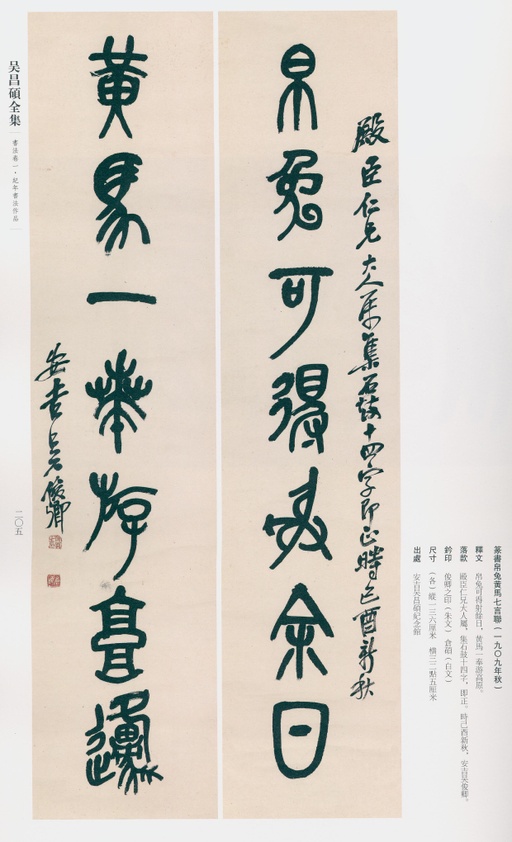 殿臣仁兄大人屬集石鼓十四字即正時己酉新秋
帛兔可得射余日
黃馬一奉游高邍
安吉吳俊卿
吴昌碩全集
書法卷一・紀年書法作品
二〇五
篆書帛兔黃馬七言聯（一九〇九年秋）
釋文 帛兔可得射餘日，黃馬一奉游高原。
落款 殿臣仁兄大人屬，集石鼓十四字，即正。時己酉新秋，安吉吳俊卿。
鈐印 俊卿之印（朱文）倉碩（白文）
尺寸 （各）縱一三六厘米 橫三二點五厘米
出處 安吉吳昌碩紀念館